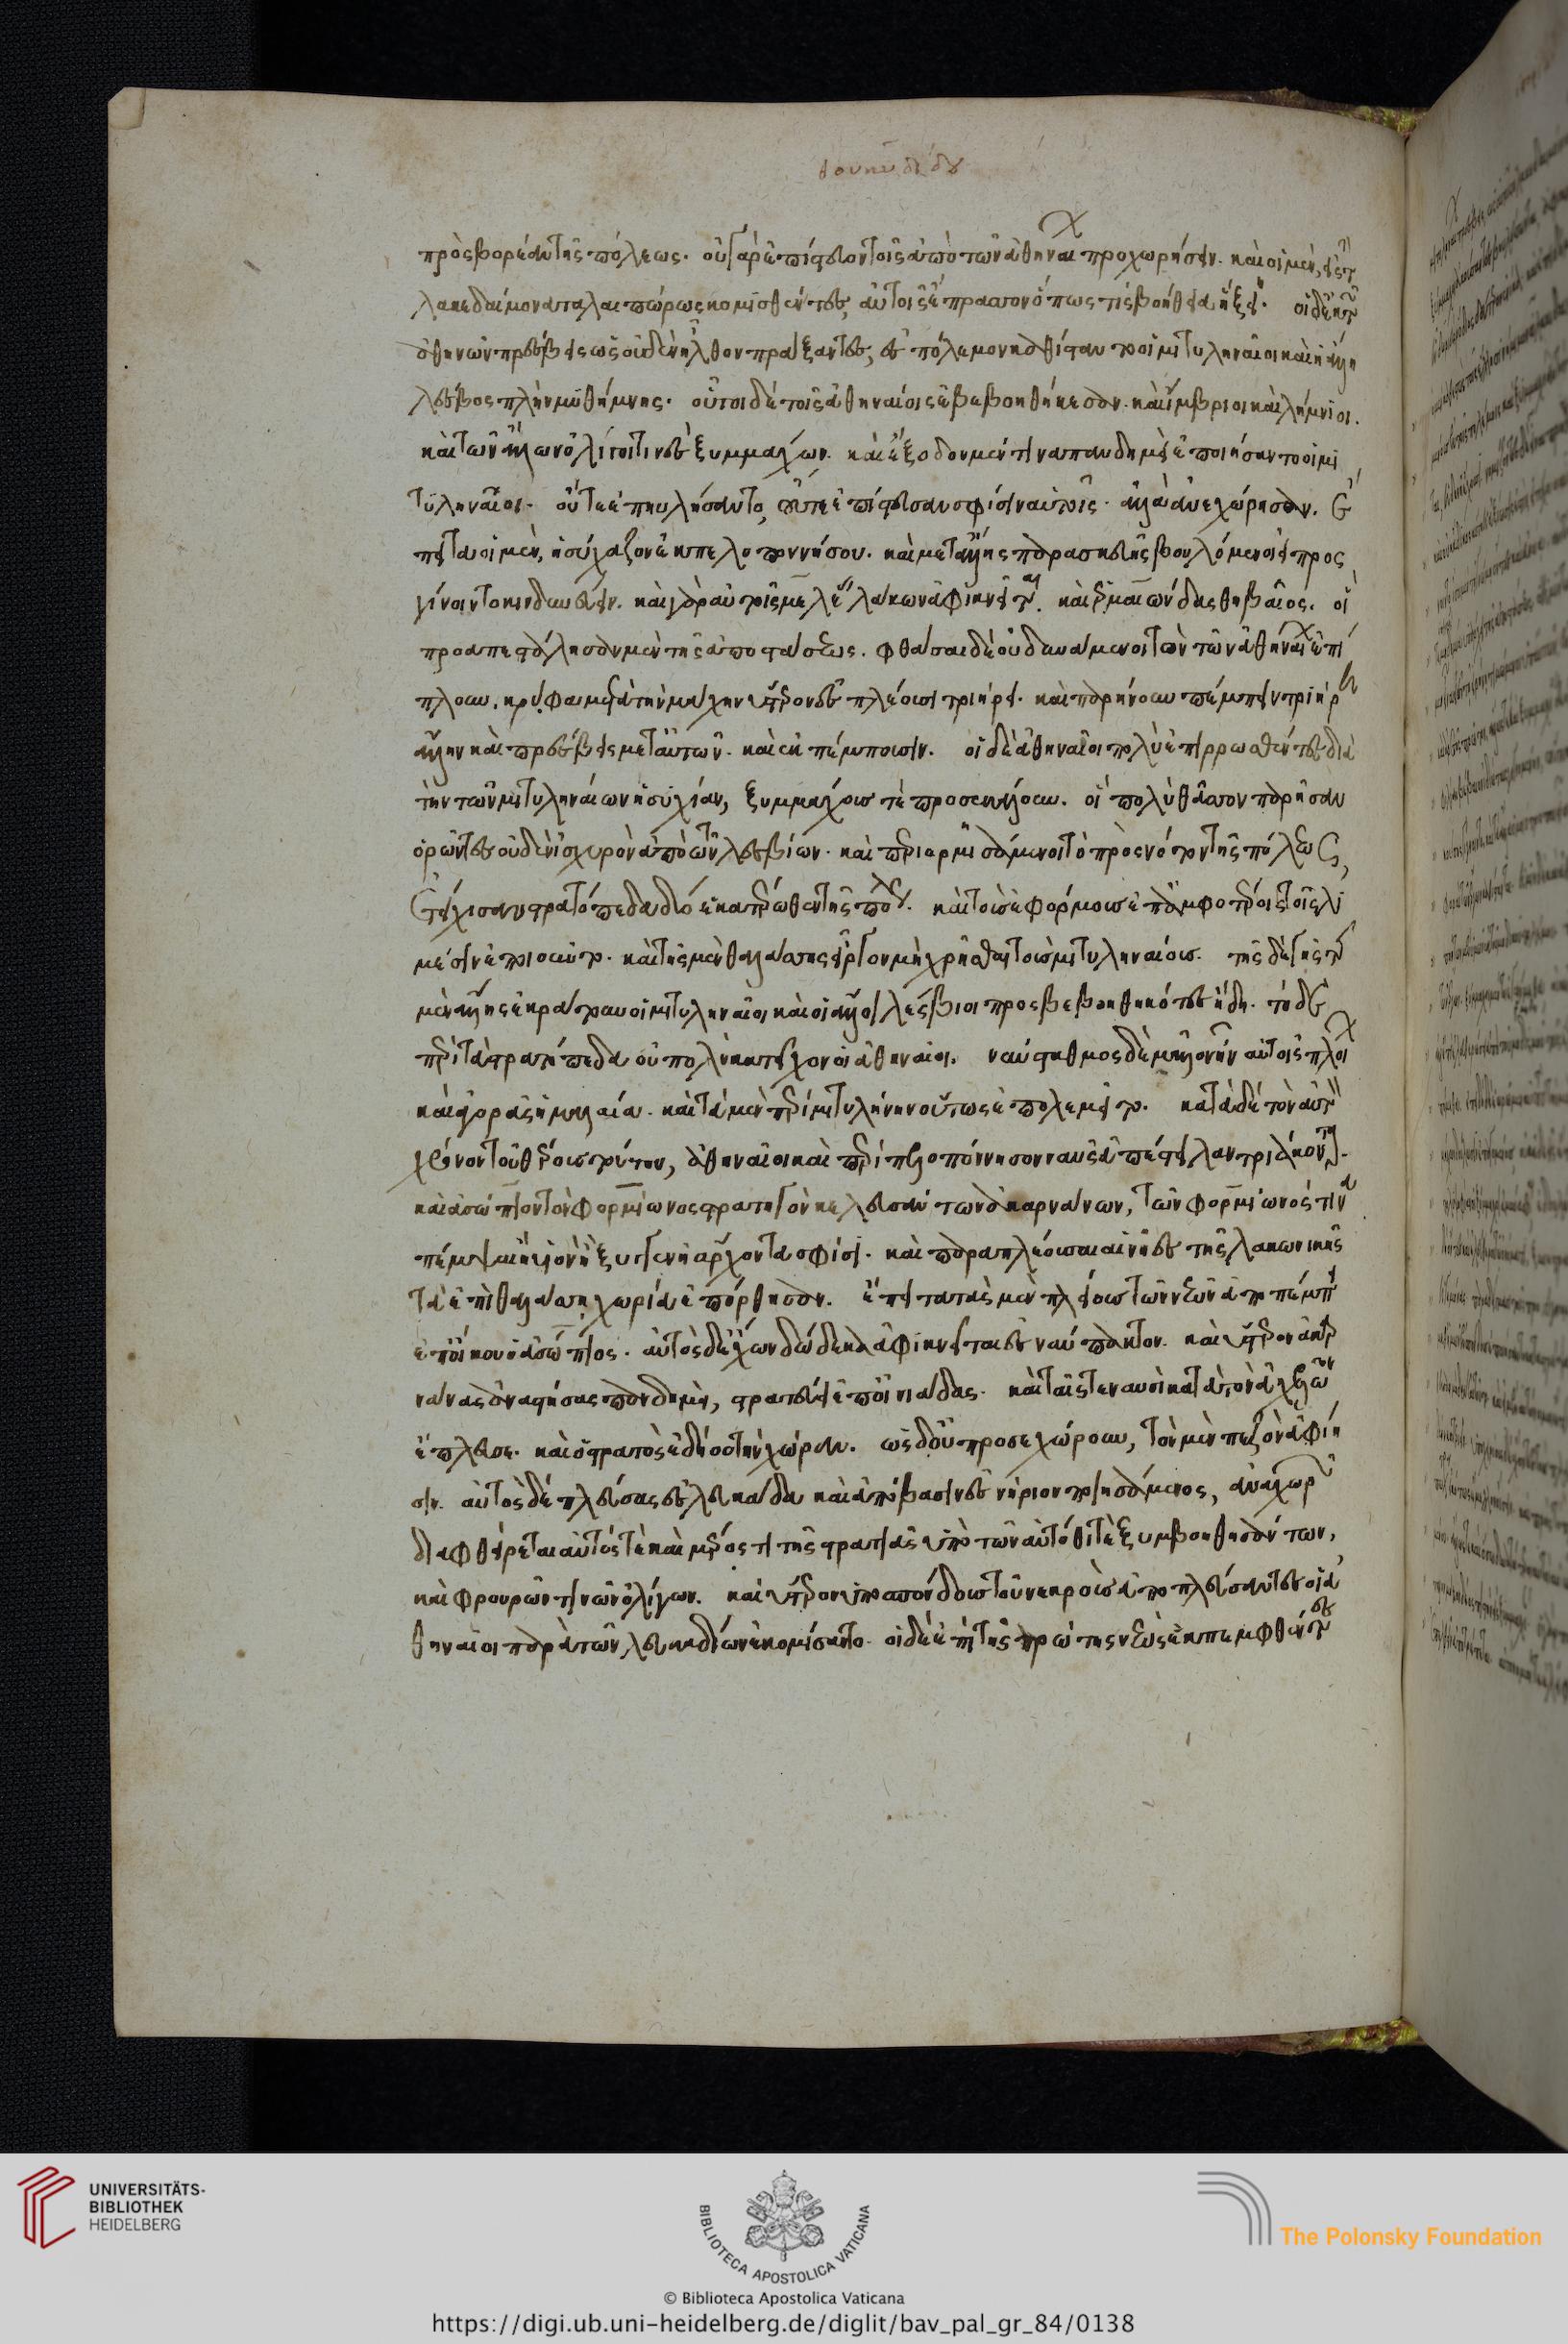 θουκυδίδου
πρὸς βορέαν τῆς πόλεως. οὐ γὰρ ἐπίστευον τοῖς ἀπὸ τῶν ἀθηναί προχωρήσειν. καὶ οἱ μὲν, ἐς τ
λακεδαίμονα ταλαιπώρως κομισθέντες, αὐτοῖς ἔπρασσον ὅπως τίς βοήθεια ἥξει. οἱ δ' ἐκ τ
ἀθηνῶν πρέσβεις ὡς οὐδὲν ἦλθον πράξαντες, ἐς πόλεμον καθίσταντο οἱ μιτυληναῖοι καὶ ἡ ἄλλη
λέσβος πλὴν μυθήμνης. οὗτοι δὲ τοῖς ἀθηναίοις ἐβεβοηθήκεσαν. καὶ ἴμβριοι καὶ λήμνιοι.
καὶ τῶν ἄλλων ὀλίγοι τινὲς ξυμμάχων. καὶ ἔξοδον μέν τινα πανδημεὶ ἐποιήσαντο οἱ μι
τυληναῖοι. οὔτε ἐπηυλίσαντο, οὔτε ἐπίστευσαν σφίσιν αὐτοῖς. ἀλλὰ ἀνεχώρησαν. ἔ
πειτα οἱ μὲν, ἡσύχαζον ἐκ πελοποννήσου. καὶ μετ' ἄλλης παρασκευῆς βουλόμενοι εἰ προς
γίνοιντο κινδυνεύειν. καὶ γὰρ αὐτοῖς μελέας λάκων ἀφικνεῖται. καὶ ἑρμαιώνδας θηβαῖος. οἳ
προαπεστάλησαν μὲν τῆς ἀποστάσεως. φθάσαι δὲ οὐ δυνάμενοι τὸν τῶν ἀθηναί ἐπί
πλουν, κρύφα μετὰ τὴν μάχην ὕστερον ἐσπλέουσι τριήρει. καὶ παρῄνουν πέμπειν τριήρη
ἄλλην καὶ πρέσβεις μετ' αὐτῶν. καὶ ἐκπέμπουσιν. οἱ δὲ ἀθηναῖοι πολὺ ἐπιρρωσθέντες διὰ
τὴν τῶν μιτυληναίων ἡσυχίαν, ξυμμάχους τὲ προσεκάλουν. οἳ πολὺ θᾶσσον παρῆσαν
ὁρῶντες οὐδὲν ἰσχυρὸν ἀπὸ τῶν λεσβίων. καὶ περιορμισάμενοι τὸ πρὸς νότον τῆς πόλεως,
ἐτείχισαν στρατόπεδα δύο ἑκατέρωθεν τῆς πόλ. καὶ τοὺς ἐφόρμους ἐπ' ἀμφοτέροις τοῖς λι
μέσιν ἐποιοῦντο. καὶ τῆς μὲν θαλάσσης εἶργον μὴ χρῆσθαι τοὺς μιτυληναίους. τῆς δὲ γῆς τ
μὲν ἄλλης ἐκράτουν οἱ μιτυληναῖοι καὶ οἱ ἄλλοι λέσβιοι προσβεβοηθηκότες ἤδη. τὸ δὲ
περὶ τὰ στρατόπεδα οὐ πολὺ κατεῖχον οἱ ἀθηναῖοι. ναύσταθμος δὲ μᾶλλον ἦν αὐτοῖς πλοί
καὶ ἀγορᾶς ἡ μαλαία. καὶ τὰ μὲν περὶ μιτυλήνην οὕτως ἐπολεμεῖτο. κατὰ δὲ τὸν αὐτ
χρόνον τοῦ θέρους τούτου, ἀθηναῖοι καὶ περὶ πελοπόννησον ναῦς ἀπέστειλαν τριάκοντα.
καὶ ἀσώπιον τὸν φορμίωνος στρατηγὸν κελευσάντων ἀκαρνάνων, τῶν φορμίωνός τινα
πέμψαι ἢ υἱὸν ἢ ξυγγενῆ ἄρχοντα σφίσι. καὶ παραπλέουσαι αἱ νῆες τῆς λακωνικῆς
τὰ ἐπὶ θαλάσσῃ χωρία ἐπόρθησαν. ἔπειτα τὰς μὲν πλείους τῶν νεῶν ἀποπέμπει
ἐπ' οἴκου ὁ ἀσώπιος. αὐτὸς δὲ ἔχων δώδεκα ἀφικνεῖται ἐς ναύπακτον. καὶ ὕστερον ἀκαρ
νάνας ἀναστήσας πανδημεὶ, στρατεύει ἐπ' οἰνιάδας. καὶ ταῖς τε ναυσὶ κατὰ τὸν ἀχελῶον
ἔπλευσε. καὶ ὁ στρατὸς ἐδῄου τὴν χώραν. ὡς δ' οὐ προσεχώρουν, τὸν μὲν πεζὸν ἀφίη
σιν. αὐτὸς δὲ πλεύσας ἐς λευκάδα καὶ ἀπόβασιν ἐς νήριον ποιησάμενος, ἀναχωρ
διαφθείρεται αὐτός τὲ καὶ μέρος τι τῆς στρατιᾶς ὑπὸ τῶν αὐτόθι τὲ ξυμβοηθησάντων,
καὶ φρουρῶν τινῶν ὀλίγων. καὶ ὕστερον ὑποσπόνδους τοὺς νεκροὺς ἀποπλεύσαντες οἱ ἀ
θηναῖοι παρὰ τῶν λευκαδίων ἐκομίσαντο. οἱ δὲ ἐπὶ τῆς πρώτης νεὼς ἐκπεμφθέντες
UNIVERSITÄTS-
BIBLIOTHEK
HEIDELBERG
BIBLIOTECA APOSTOLICA VATICANA
The Polonsky Foundation
© Biblioteca Apostolica Vaticana
https://digi.ub.uni-heidelberg.de/diglit/bav_pal_gr_84/0138